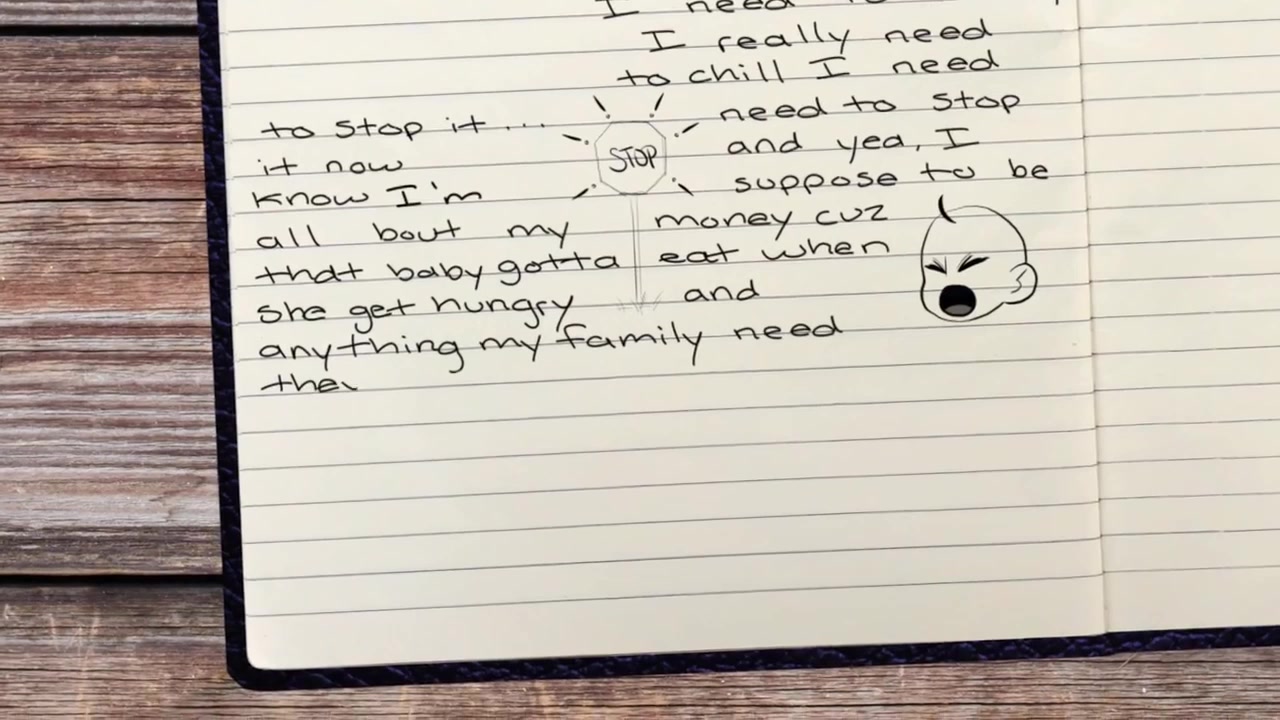 I need
I really need
to chill I need
to stop it... STOP need to stop
it now and yea, I
know I'm suppose to be
all bout my money cuz
that baby gotta eat when
she get hungry and
anything my family need